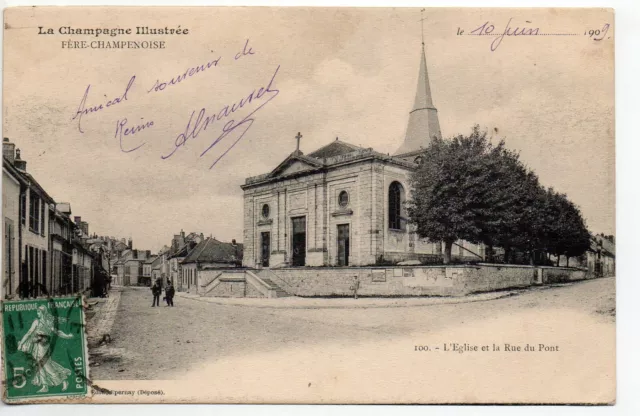 La Champagne Illustrée
FÈRE-CHAMPENOISE
le 10 Juin 1909.
Amical souvenir de
Reims
100. - L'Eglise et la Rue du Pont
Epernay (Déposé).
5
POSTES